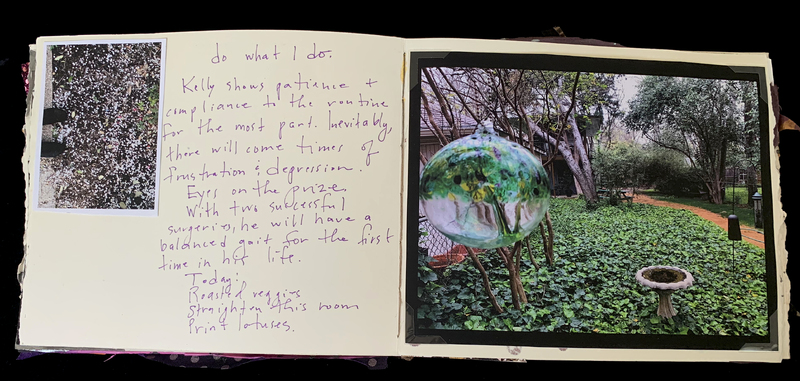 do what I do.
Kelly shows patience +
compliance to the routine
for the most part. Inevitably,
there will come times of
frustration & depression.
Eyes on the prize.
With two successful
surgeries, he will have a
balanced gait for the first
time in his life.
Today:
Roasted veggies
Straighten this room
Print lotuses.